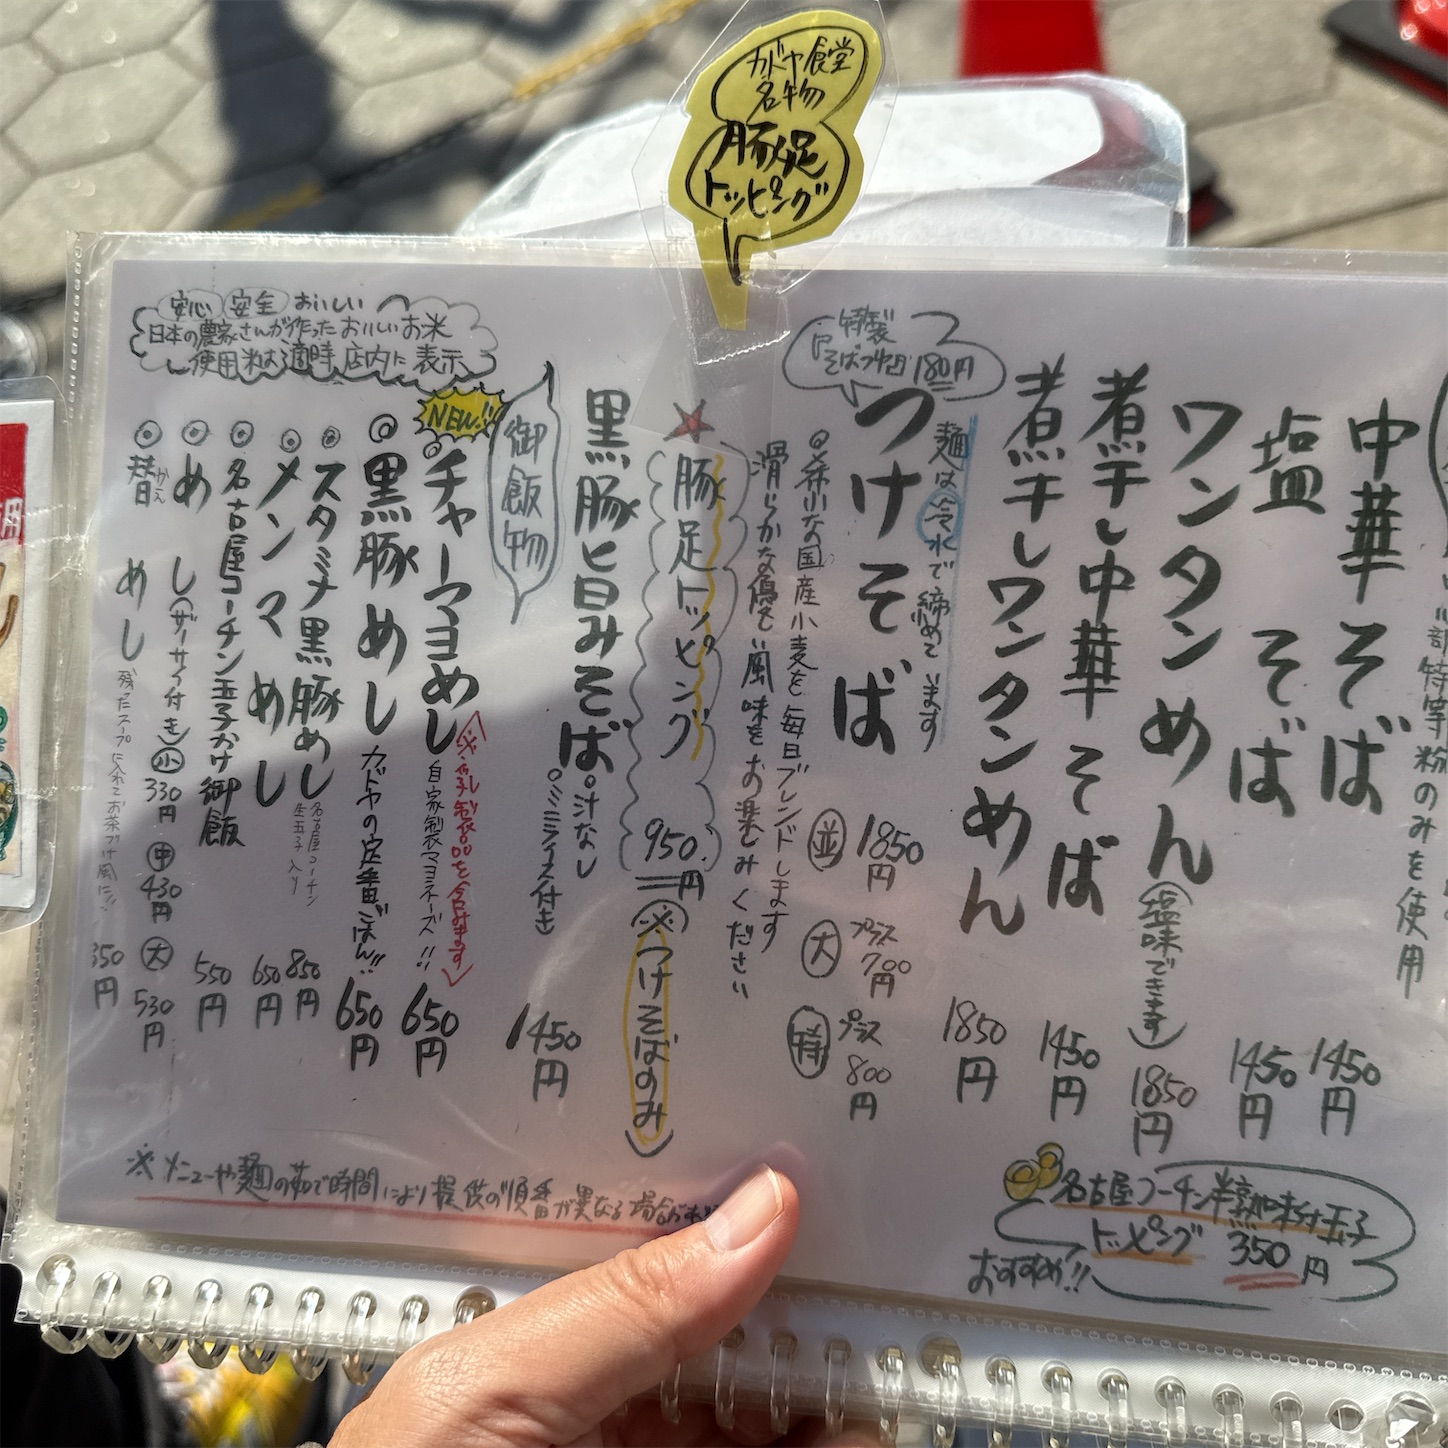 カドヤ食堂
名物
豚足
トッピング
中華そば
1450円
塩そば
1450円
ワンタンめん
(塩味できます)
1850円
煮干し中華そば
1450円
煮干しワンタンめん
1850円
特製
そばつゆ 180円
麺は冷水で締めています
つけそば
並 1850円
大 プラス700円
特 プラス800円
希少な国産小麦を毎日ブレンドします
滑らかな優しい風味をお楽しみください
豚足トッピング
950円
(※つけそばのみ)
黒豚旨みそば
汁なし
ミニライス付き
1450円
御飯物
安心 安全 おいしい
日本の農家さんが作ったおいしいお米
使用米は適時、店内に表示
NEW!!
チャーマヨめし
自家製マヨネーズ!!
650円
黒豚めし
カドヤの定番ごはん!!
650円
スタミナ黒豚めし
名古屋コーチン
生玉子入り
850円
メンマめし
650円
名古屋コーチン玉子かけ御飯
550円
めし(ザーサイ付き)
小 330円
中 430円
大 530円
替めし
かえ
残ったスープに入れてお茶づけ風に!!
350円
※メニューや麺の茹で時間により提供の順番が異なる場合が
名古屋コーチン半熟味付玉子
トッピング 350円
おすすめ!!
部特等粉のみを使用